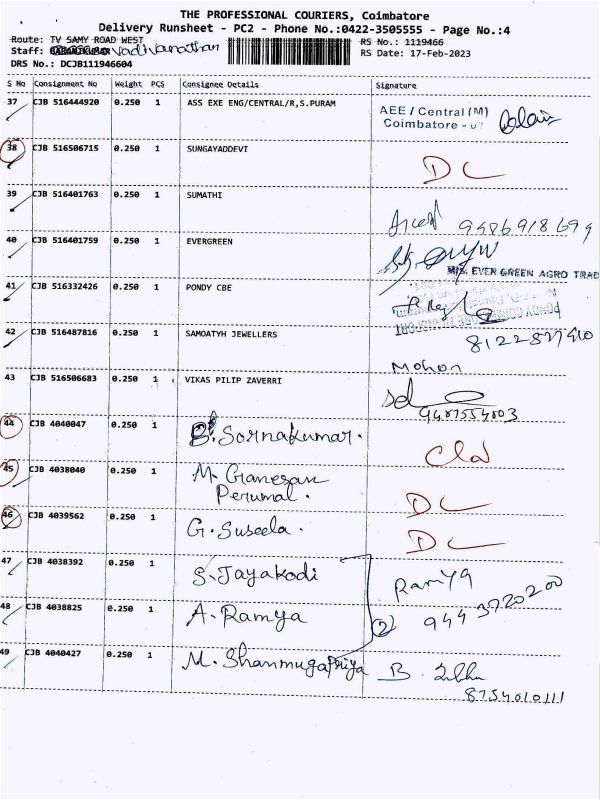 THE PROFESSIONAL COURIERS, Coimbatore
Delivery Runsheet - PC2 - Phone No.:0422-3505555 - Page No.:4
Route: TV SAMY ROAD WEST
RS No.: 1119466
Staff: Vadivanathan
RS Date: 17-Feb-2023
DRS No.: DCJB111946604
S No Consignment No Weight PCS Consignee Details Signature
37 CJB 516444920 0.250 1 ASS EXE ENG/CENTRAL/R,S.PURAM
AEE / Central (M)
Coimbatore
38 CJB 516506715 0.250 1 SUNGAYADDEVI
DC
39 CJB 516401763 0.250 1 SUMATHI
40 CJB 516401759 0.250 1 EVERGREEN
M/S. EVER GREEN AGRO TRAD
41 CJB 516332426 0.250 1 PONDY CBE
42 CJB 516487816 0.250 1 SAMOATYH JEWELLERS
Mohan
43 CJB 516506683 0.250 1 VIKAS PILIP ZAVERRI
sd
44 CJB 4040047 0.250 1 Sornakumar.
45 CJB 4038040 0.250 1 M. Ganesan
Perumal.
DC
46 CJB 4039562 0.250 1 G. Suseela.
DC
47 CJB 4038392 0.250 1 S. Jayakodi
Ramya
48 CJB 4038825 0.250 1 A. Ramya
2 944 3720200
49 CJB 4040427 0.250 1 M. Shanmugapriya
B.
8754010111